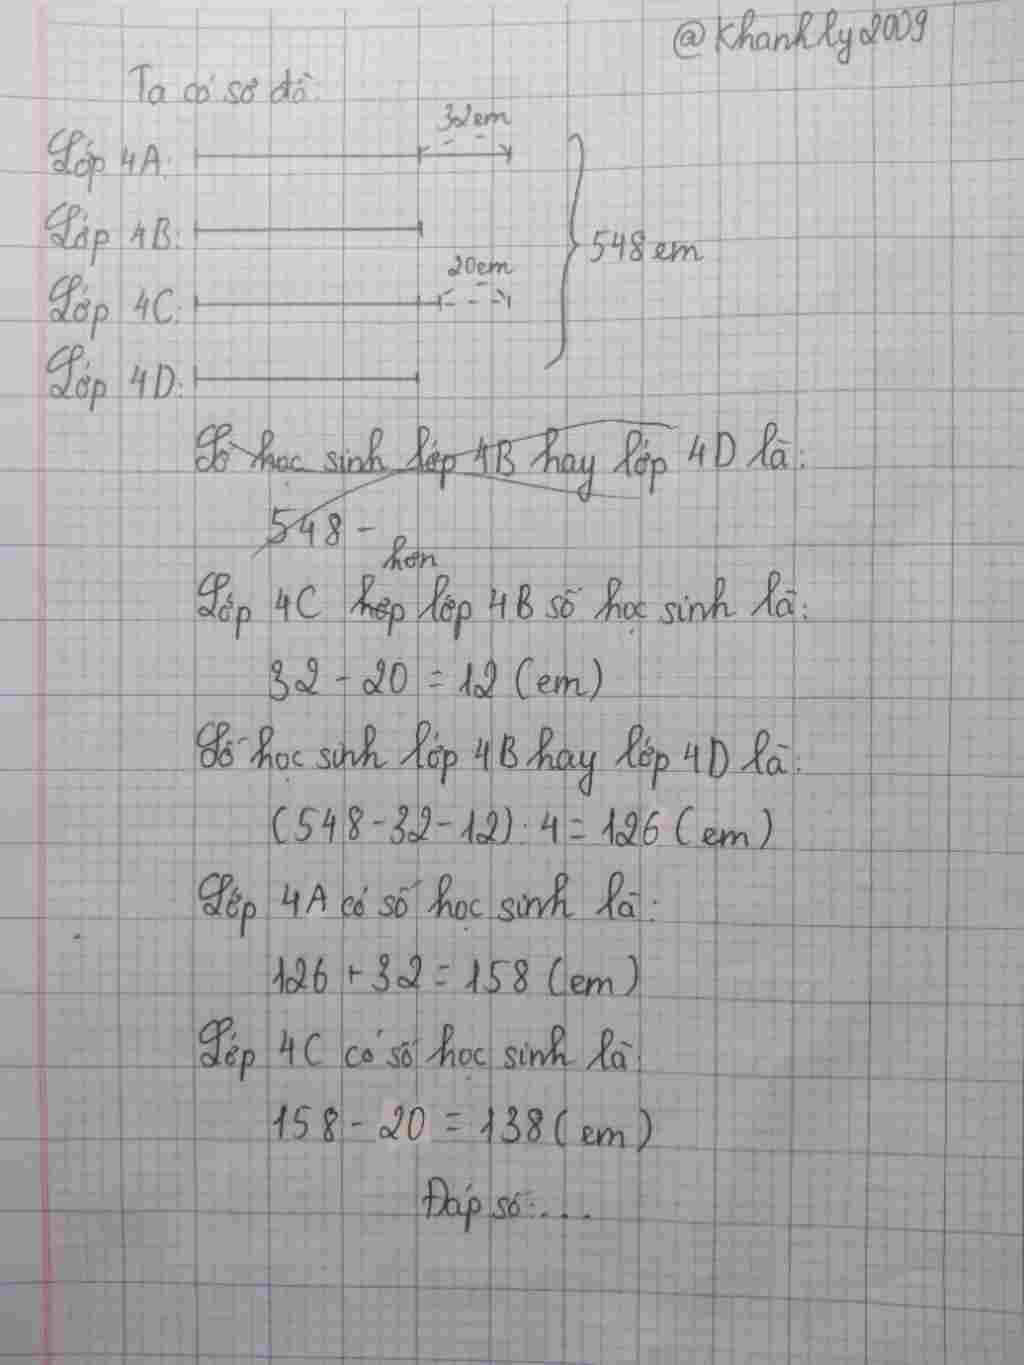 @Khanhly2009
Ta có sơ đồ:
32em
Lớp 4A:
Lớp 4B:
548 em
20em
Lớp 4C:
Lớp 4D:
Số học sinh lớp 4B hay lớp 4D là:
548 -
hơn
Lớp 4C hợp lớp 4B số học sinh là:
32 - 20 = 12 (em)
Số học sinh lớp 4B hay lớp 4D là:
(548 - 32 - 12) : 4 = 126 (em)
Lớp 4A có số học sinh là:
126 + 32 = 158 (em)
Lớp 4C có số học sinh là:
158 - 20 = 138 (em)
Đáp số:...